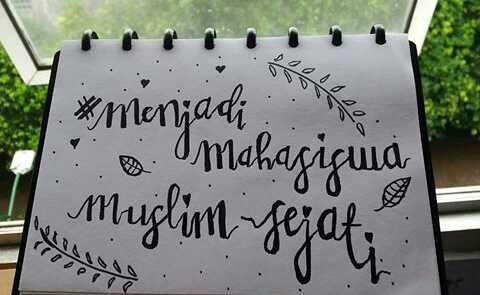 #menjadi
mahasiswa
muslim sejati